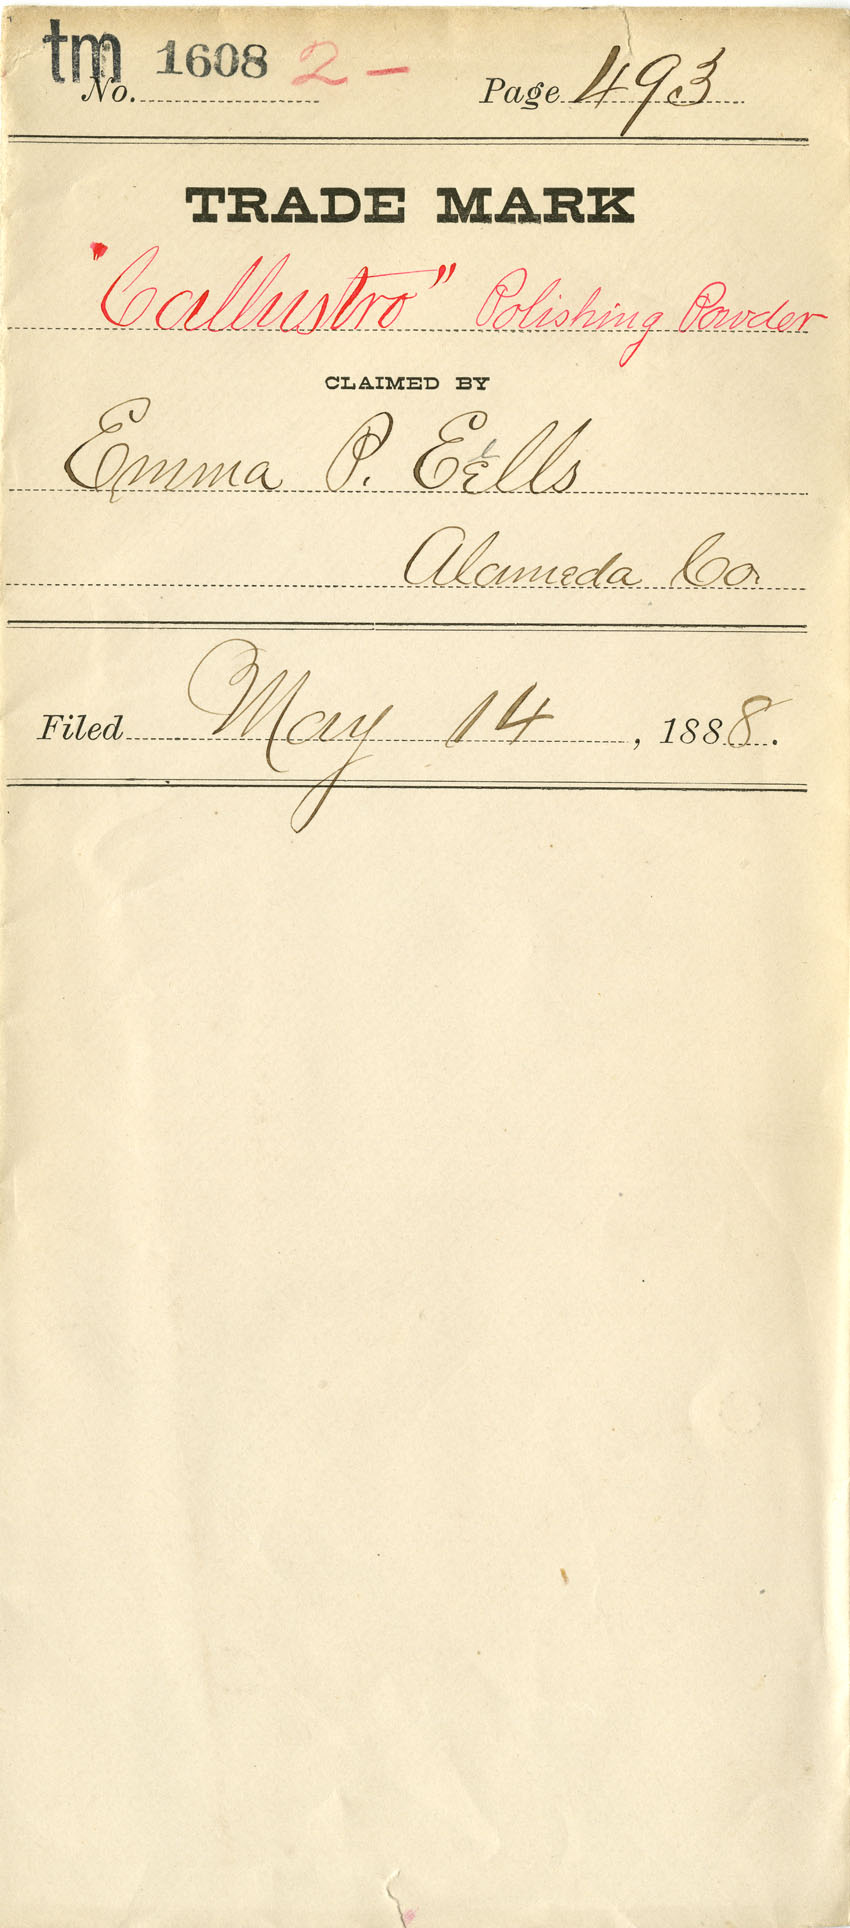 tm 1608 2 -
No. Page 493
TRADE MARK
"Callustro" Polishing Powder
CLAIMED BY
Emma P. Eells
Alameda Co.
Filed May 14, 1888.